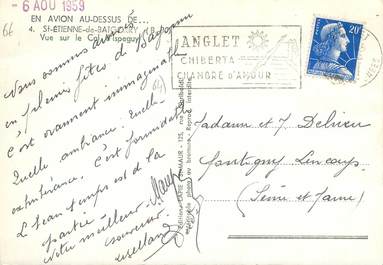 - 6 AOU 1959
66
EN AVION AU-DESSUS DE...
4. St-ETIENNE-de-BAIGORRY
Vue sur le Col Ispeguy
ANGLET
CHIBERTA
CHAMBRE D'AMOUR
20F
Nous sommes arrivés
en pleines fêtes de Bayonne
C'est vraiment inimaginable
Quelle ambiance. Quelle
exhubérance. C'est formidable
Le beau temps est de la
partie.
Notre meilleur
souvenir
Madame et
Montigny Lencoup
(Seine et Marne)